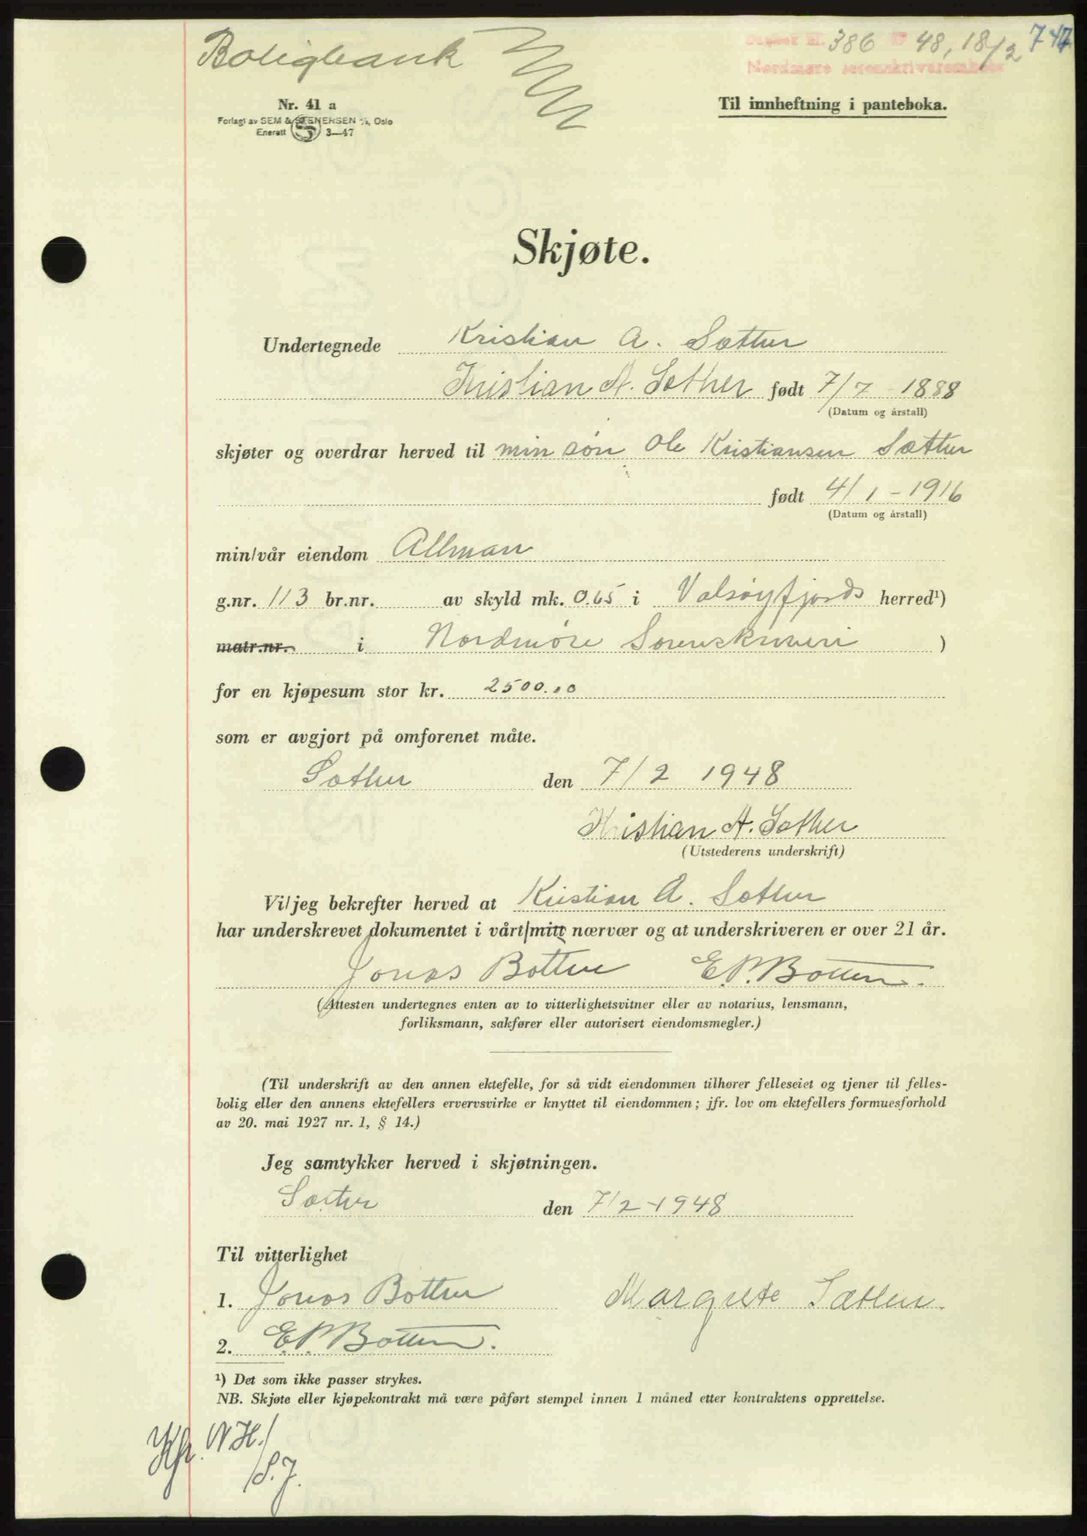 Boligbank
386 48, 18/2 747
Nordmøre sorenskriverembede
Nr. 41 a
Forlagt av SEM & STENERSEN A/S, Oslo
Enerett S 3—47
Til innheftning i panteboka.
Skjøte.
Undertegnede Kristian A. Sæther
Kristian A. Sæther født 7/7 - 1888
(Datum og årstall)
skjøter og overdrar herved til min søn Ole Kristiansen Sæther
født 4/1 - 1916
(Datum og årstall)
min/vår eiendom Allman
g.nr. 113 br.nr. av skyld mk. 0.65 i Valsøyfjords herred¹)
matr.nr. i Nordmøre Sorenskriveri )
for en kjøpesum stor kr. 2500.00
som er avgjort på omforenet måte.
Sæther den 7/2 1948
Kristian A. Sæther
(Utstederens underskrift)
Vi/jeg bekrefter herved at Kristian A. Sæther
har underskrevet dokumentet i vårt/mitt nærvær og at underskriveren er over 21 år.
Jonas Botten E.P. Botten.
(Attesten undertegnes enten av to vitterlighetsvitner eller av notarius, lensmann,
forliksmann, sakfører eller autorisert eiendomsmegler.)
(Til underskrift av den annen ektefelle, for så vidt eiendommen tilhører felleseiet og tjener til felles-
bolig eller den annens ektefellers ervervsvirke er knyttet til eiendommen; jfr. lov om ektefellers formuesforhold
av 20. mai 1927 nr. 1, § 14.)
Jeg samtykker herved i skjøtningen.
Sæter den 7/2 - 1948
Til vitterlighet
1. Jonas Botten Margrete Sæther.
2. E.P. Botten.
¹) Det som ikke passer strykes.
NB. Skjøte eller kjøpekontrakt må være påført stempel innen 1 måned etter kontraktens opprettelse.
Kfr. N H./
S.J.